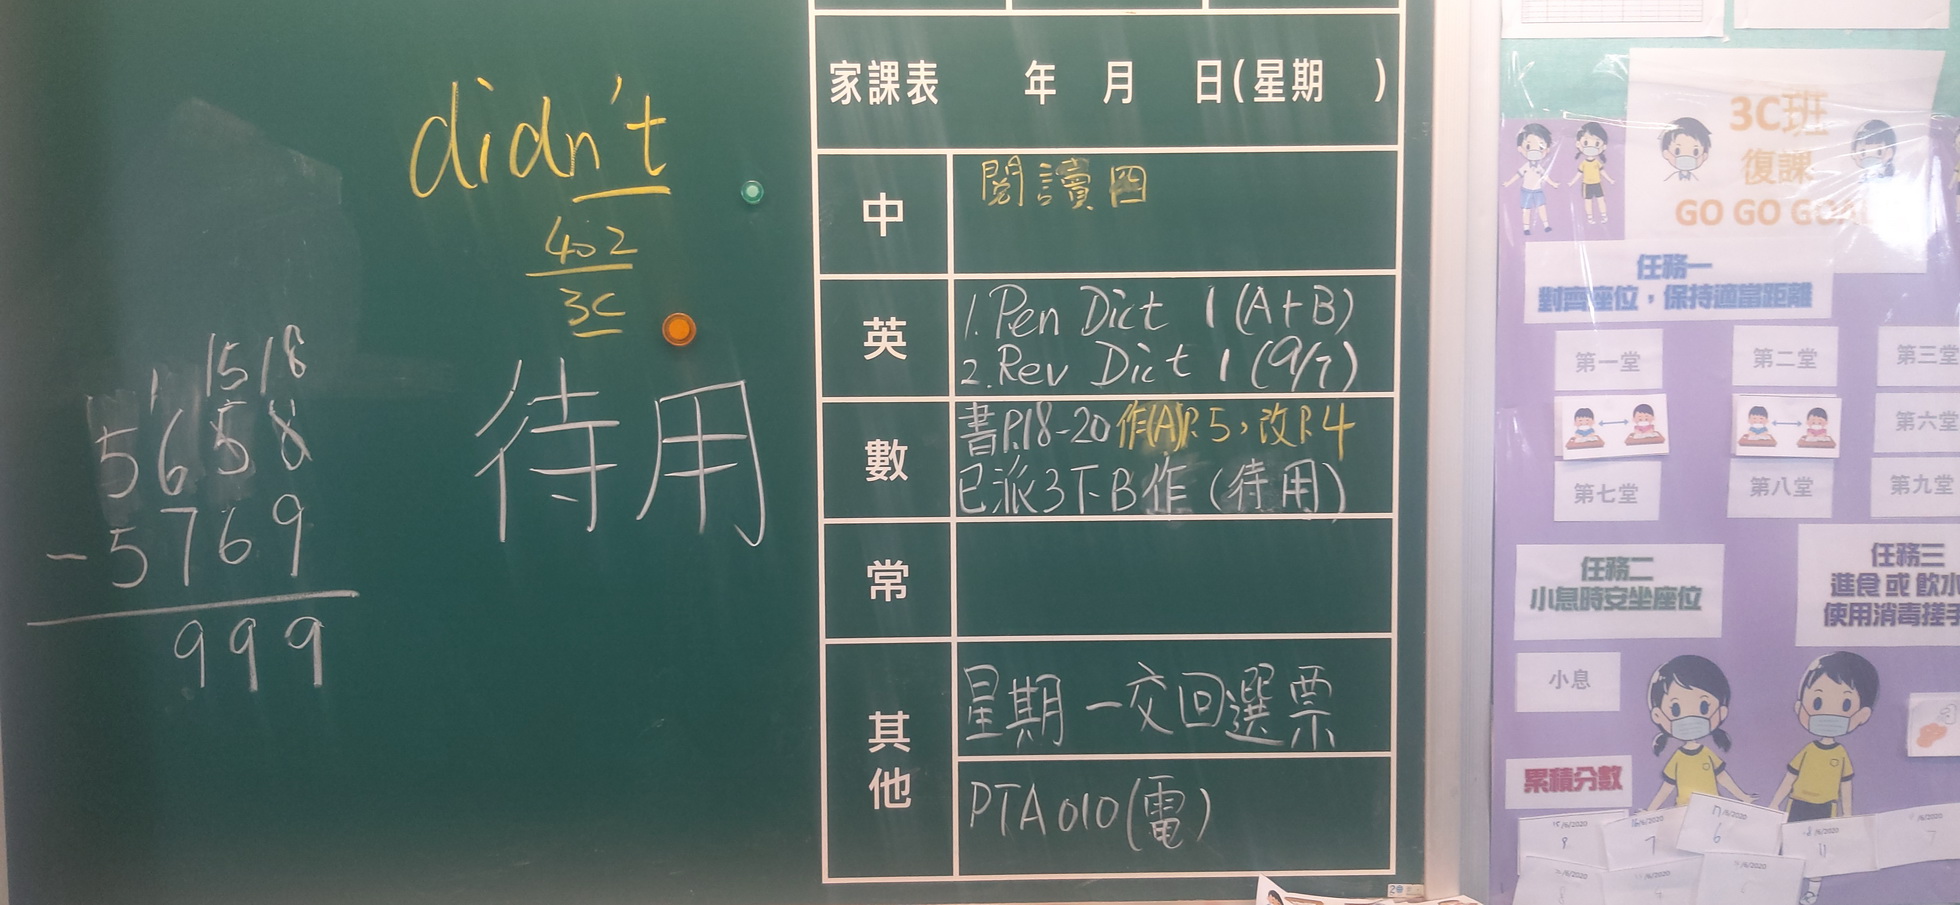 didn't
402
3C
待用
1 15 18
5658
- 5769
999
家課表 年 月 日(星期 )
中 閱讀四
英 1. Pen Dict 1 (A+B)
2. Rev Dict 1 (9/7)
數 書P.18-20 作(A)P.5，改P.4
已派3下B作 (待用)
常
其他 星期一交回選票
PTA010(電)
3C班
復課
GO GO GO
任務一
對齊座位，保持適當距離
第一堂 第二堂 第三堂
第六堂
第七堂 第八堂 第九堂
任務二
小息時安坐座位
任務三
進食 或 飲水
使用消毒搓手
小息
累積分數
15/6/2020
9
16/6/2020
7
17/6/2020
6
11